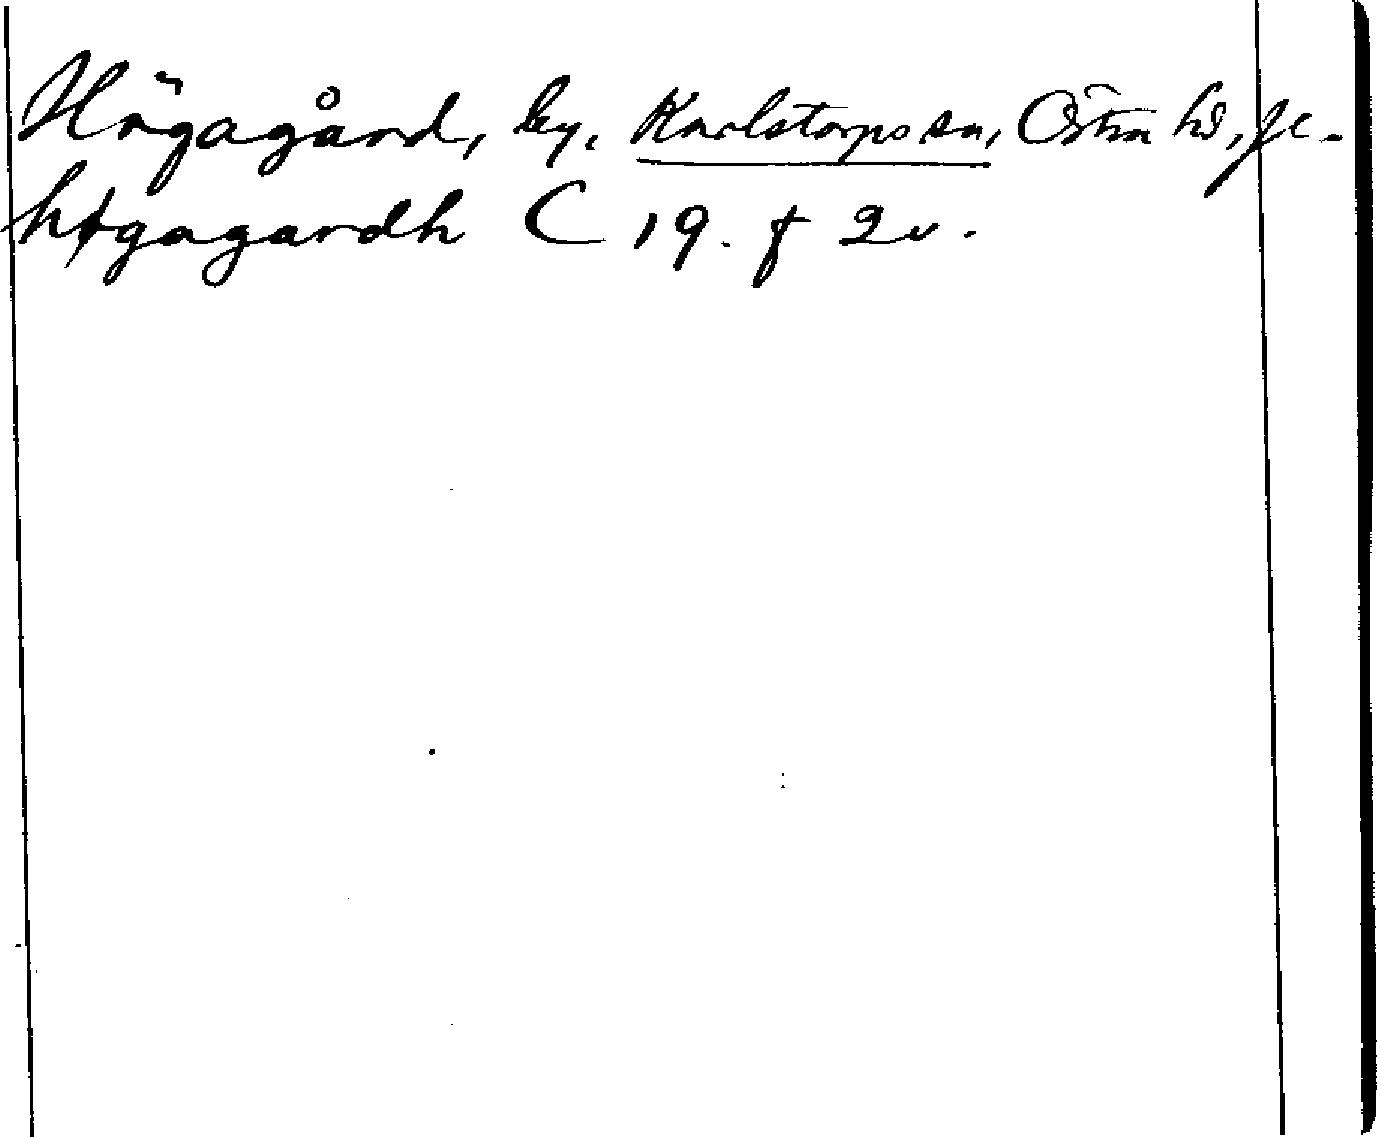 Högagård, by, Karlstorps sn, Östra hd, Jc.
høgagardh C 19. f 2v.